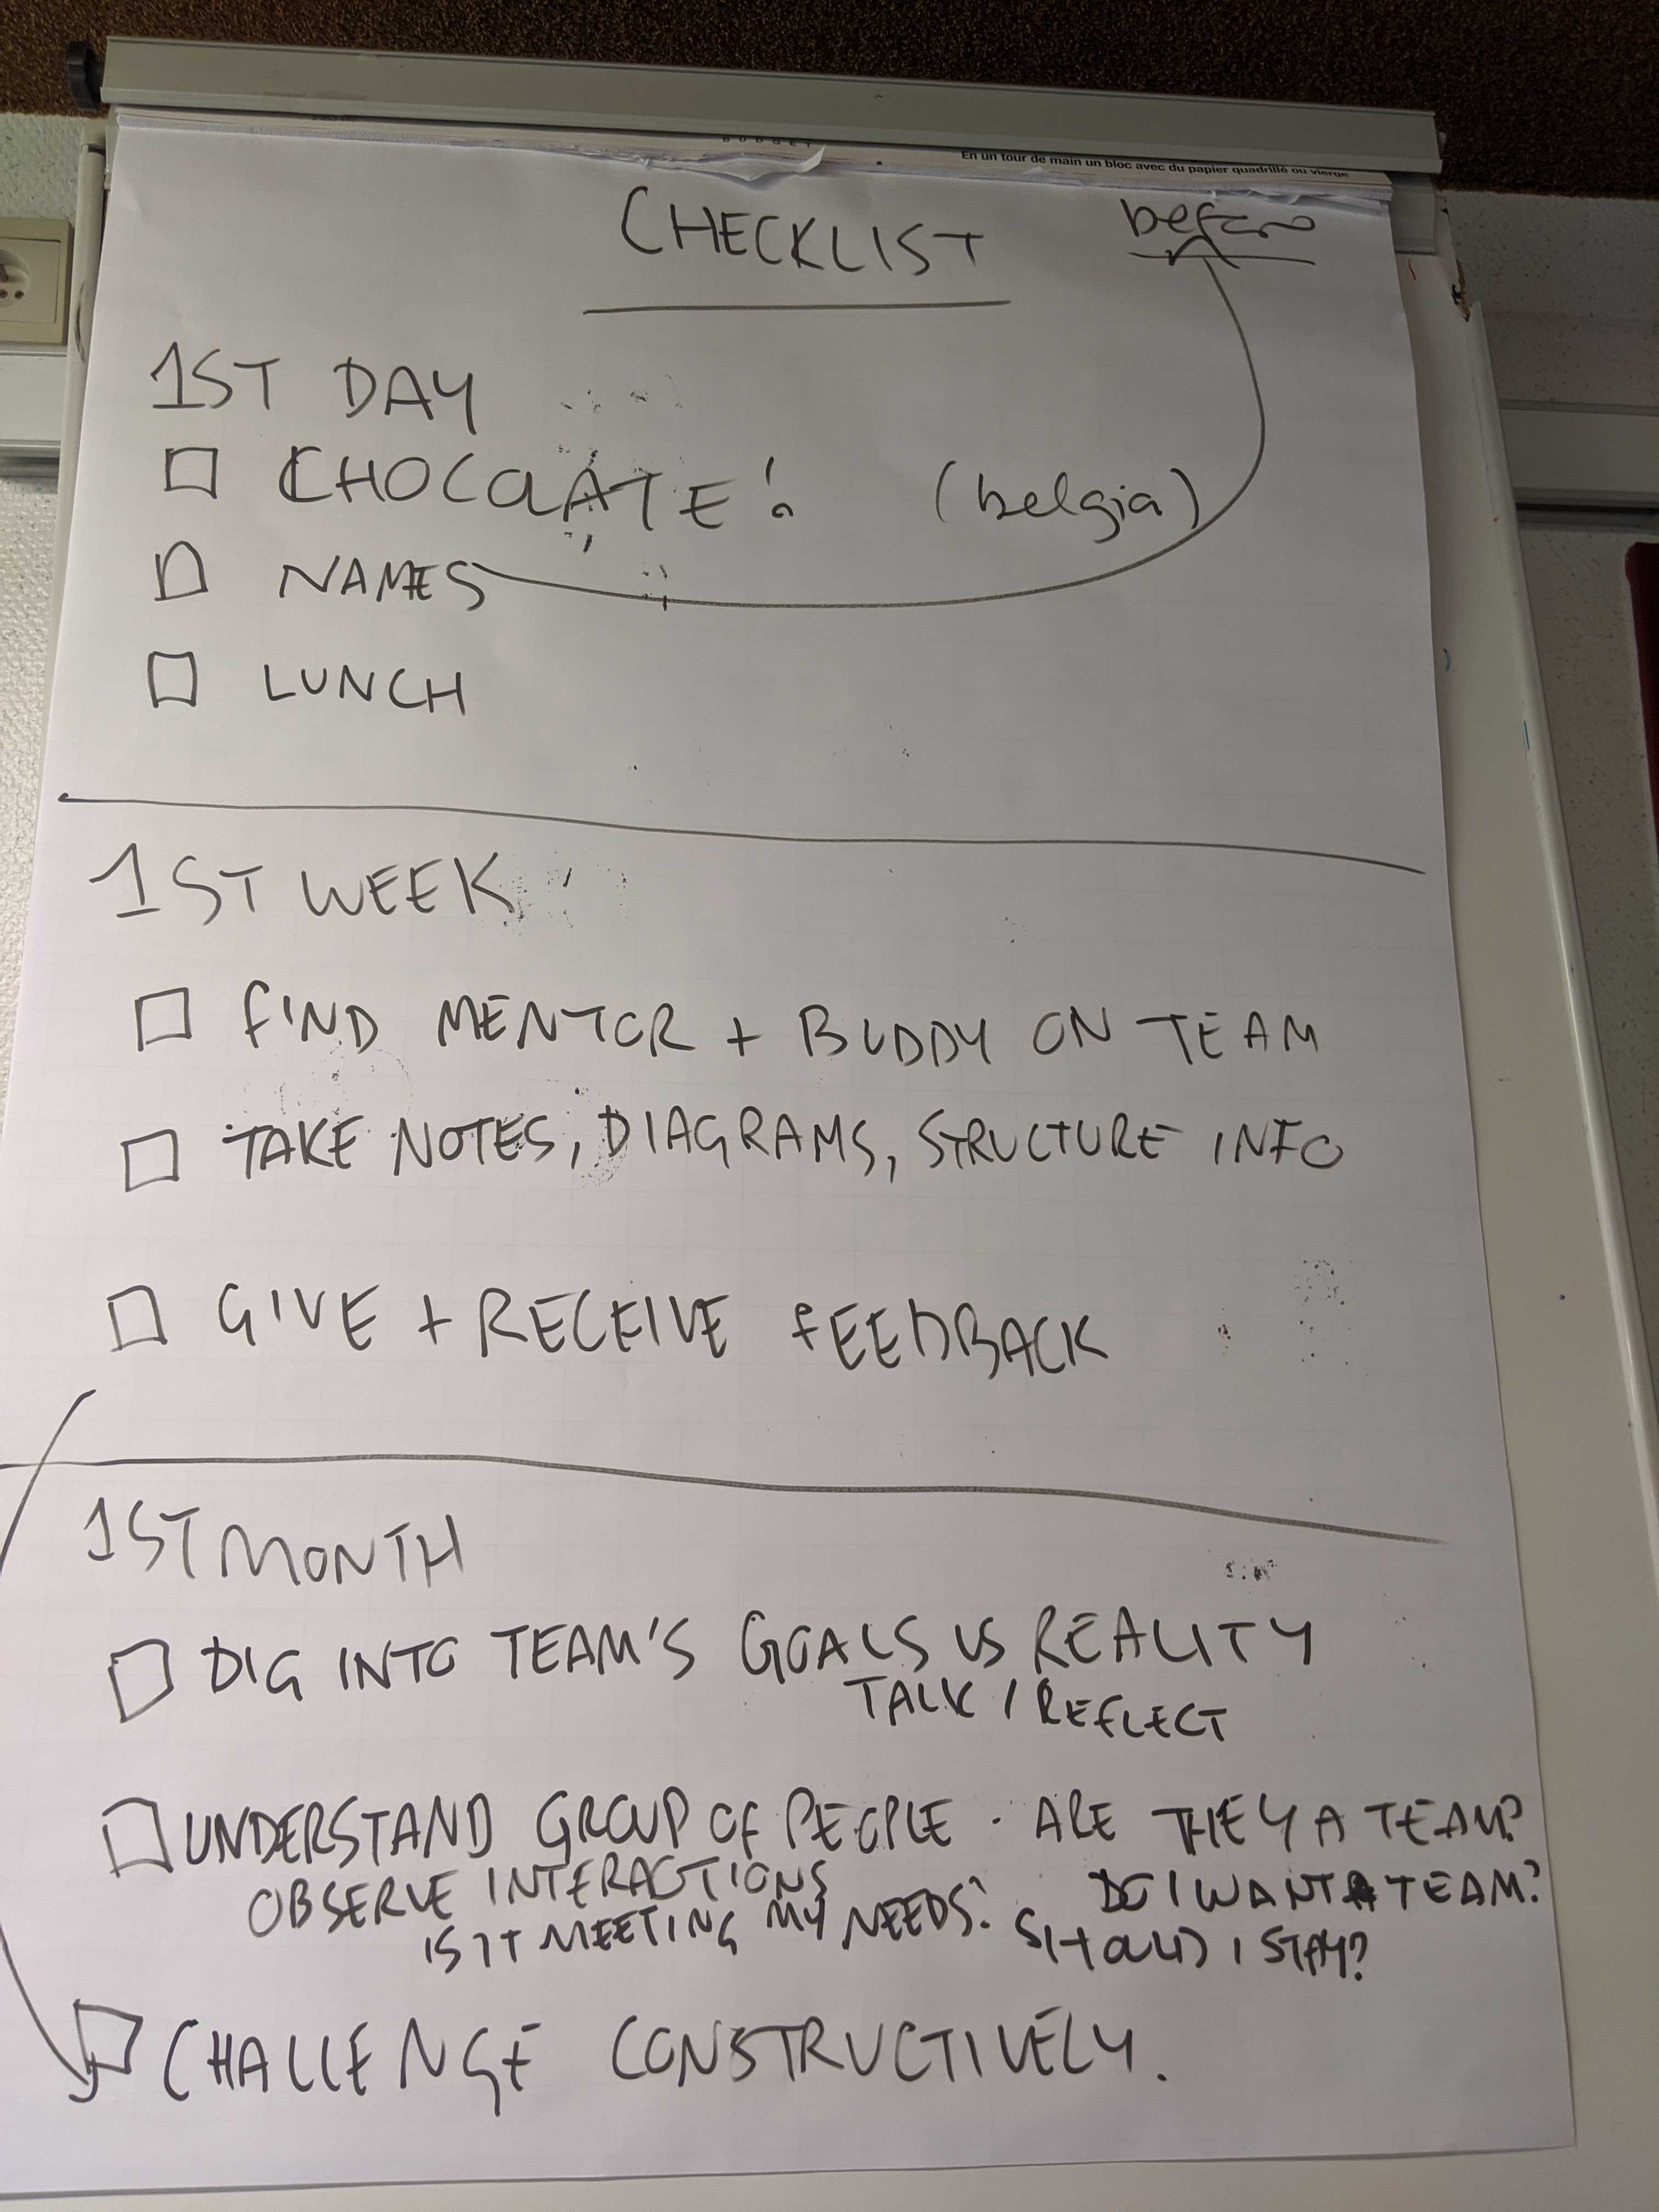 BUDGET
En un tour de main un bloc avec du papier quadrillé ou vierge
CHECKLIST
before
1ST DAY
CHOCOLATE! (belgia)
NAMES
LUNCH
1ST WEEK
FIND MENTOR + BUDDY ON TEAM
TAKE NOTES, DIAGRAMS, STRUCTURE INFO
GIVE + RECEIVE FEEDBACK
1ST MONTH
DIG INTO TEAM'S GOALS VS REALITY
TALK / REFLECT
UNDERSTAND GROUP OF PEOPLE · ARE THEY A TEAM?
OBSERVE INTERACTIONS DO I WANT A TEAM?
IS IT MEETING MY NEEDS? SHOULD I STAY?
CHALLENGE CONSTRUCTIVELY.